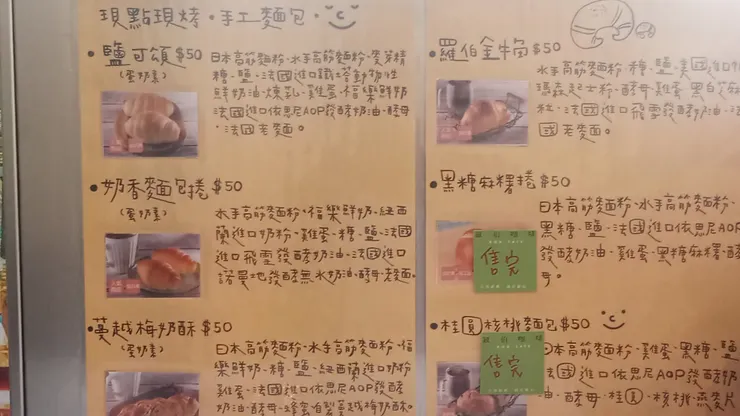 現點現烤・手工麵包・
鹽可頌 $50
(蛋奶素)
日本高筋麵粉・水手高筋麵粉・麥芽精
糖・鹽・法國進口鐵塔動物性
鮮奶油・煉乳・雞蛋・福樂鮮奶
法國進口依思尼AOP發酵奶油・酵母
・法國老麵。
奶香麵包捲 $50
(蛋奶素)
水手高筋麵粉・福樂鮮奶・紐西
蘭進口奶粉・雞蛋・糖・鹽・法國
進口飛雪發酵奶油・法國進口
諾曼地發酵無水奶油・酵母・老麵
蔓越莓奶酥 $50
(蛋奶素)
日本高筋麵粉・水手高筋麵粉・福
樂鮮奶・糖・鹽・紐西蘭進口奶粉
雞蛋・法國進口依思尼AOP發酵
奶油・酵母・蜂蜜
蔓越莓奶酥。
羅伯金牛角 $50
水手高筋麵粉・糖・鹽・美國
起士粉・酵母・雞蛋・黑白芝麻
粒・法國進口飛雪發酵奶油・法
國老麵。
黑糖麻糬捲 $50
日本高筋麵粉・水手高筋麵粉・
黑糖・鹽・法國進口依思尼AOP
發酵奶油・雞蛋・黑糖麻糬・酵
母。
售完
桂圓核桃麵包 $50
日本高筋麵粉・雞蛋・黑糖・鹽
法國進口依思尼AOP發酵奶
油・桂圓・核桃・燕麥片
售完